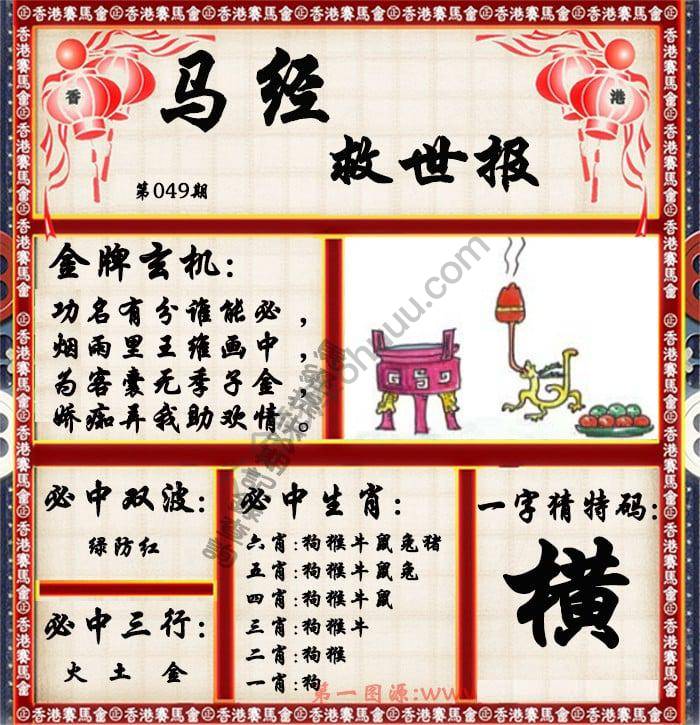 香港賽馬會
香 港
马经
救世报
第049期
金牌玄机:
功名有分谁能必，
烟雨里王维画中，
为客囊无季子金，
娇痴弄我助欢情。
必中双波:
绿防红
必中三行:
火 土 金
必中生肖:
六肖:狗猴牛鼠兔猪
五肖:狗猴牛鼠兔
四肖:狗猴牛鼠
三肖:狗猴牛
二肖:狗猴
一肖:狗
一字猜特码:
横
第一图源:www